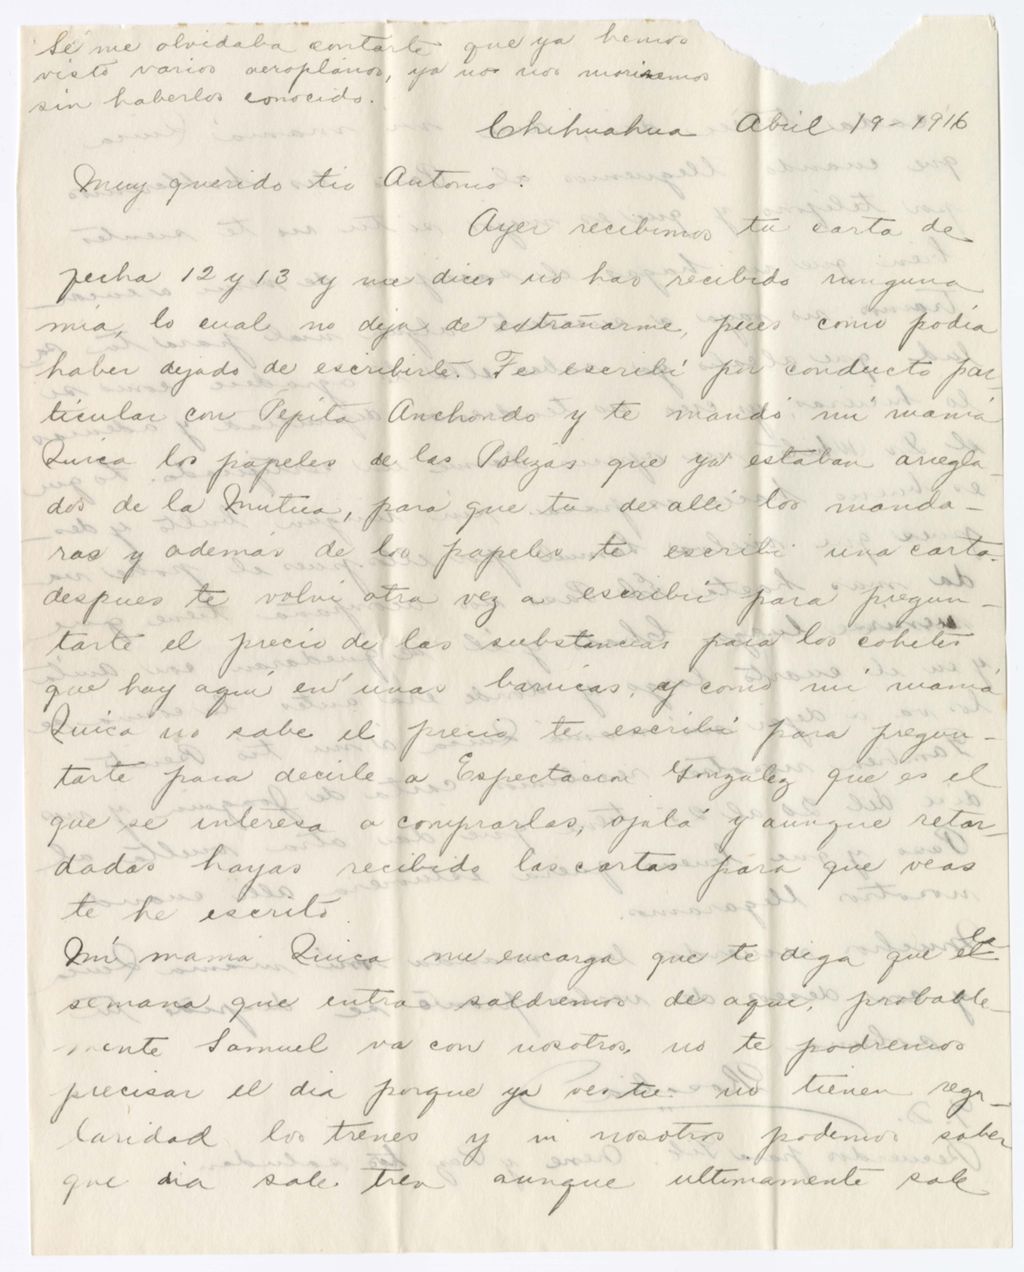 Se me olvidaba contarte que ya hemos
visto varios aeroplános, ya no nos moriremos
sin haberlos conocido.
Chihuahua Abril 19-1916
Muy querido tio Antonio:
Ayer recibimos tu carta de
fecha 12 y 13 y me dices no has recibido ninguna
mia, lo cual no deja de extrañarme, pues como podia
haber dejado de escribirte. Te escribí por conducto par-
ticular con Pepita Anchondo y te mandó mi mamá
Quica los papeles de las Polizas que ya estaban arregla-
dos de la Mutua, para que tu de allí los manda-
ras y además de los papeles te escribi una carta.
despues te volvi otra vez a escribir para pregun-
tarte el precio de las substancias para los cohetes
que hay aquí en unas barricas, y como mi mamá
Quica no sabe el precio te escribí para pregun-
tarte para decirle a Espectacion Gonzalez que es el
que se interesa a comprarlas, ojalá y aunque retar-
dadas hayas recibido las cartas para que veas
te he escrito.
Mi mamá Quica me encarga que te diga que el la
semana que entra saldremos de aqui, probable-
mente Samuel va con nosotros, no te podremos
precisar el dia porque ya ves tu no tienen regu-
laridad los trenes y ni nosotros podemos saber
que dia sale tren aunque ultimamente sale